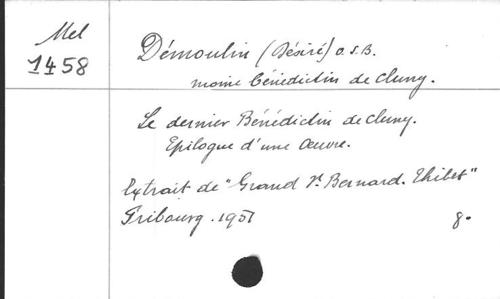 Mel
1458
Démoulin (Désiré) O.S.B.
moine bénédictin de Cluny.
Le dernier Bénédictin de Cluny.
Epilogue d'une Oeuvre.
Extrait de "Grand St. Bernard. Thibet"
Fribourg. 1951
8°